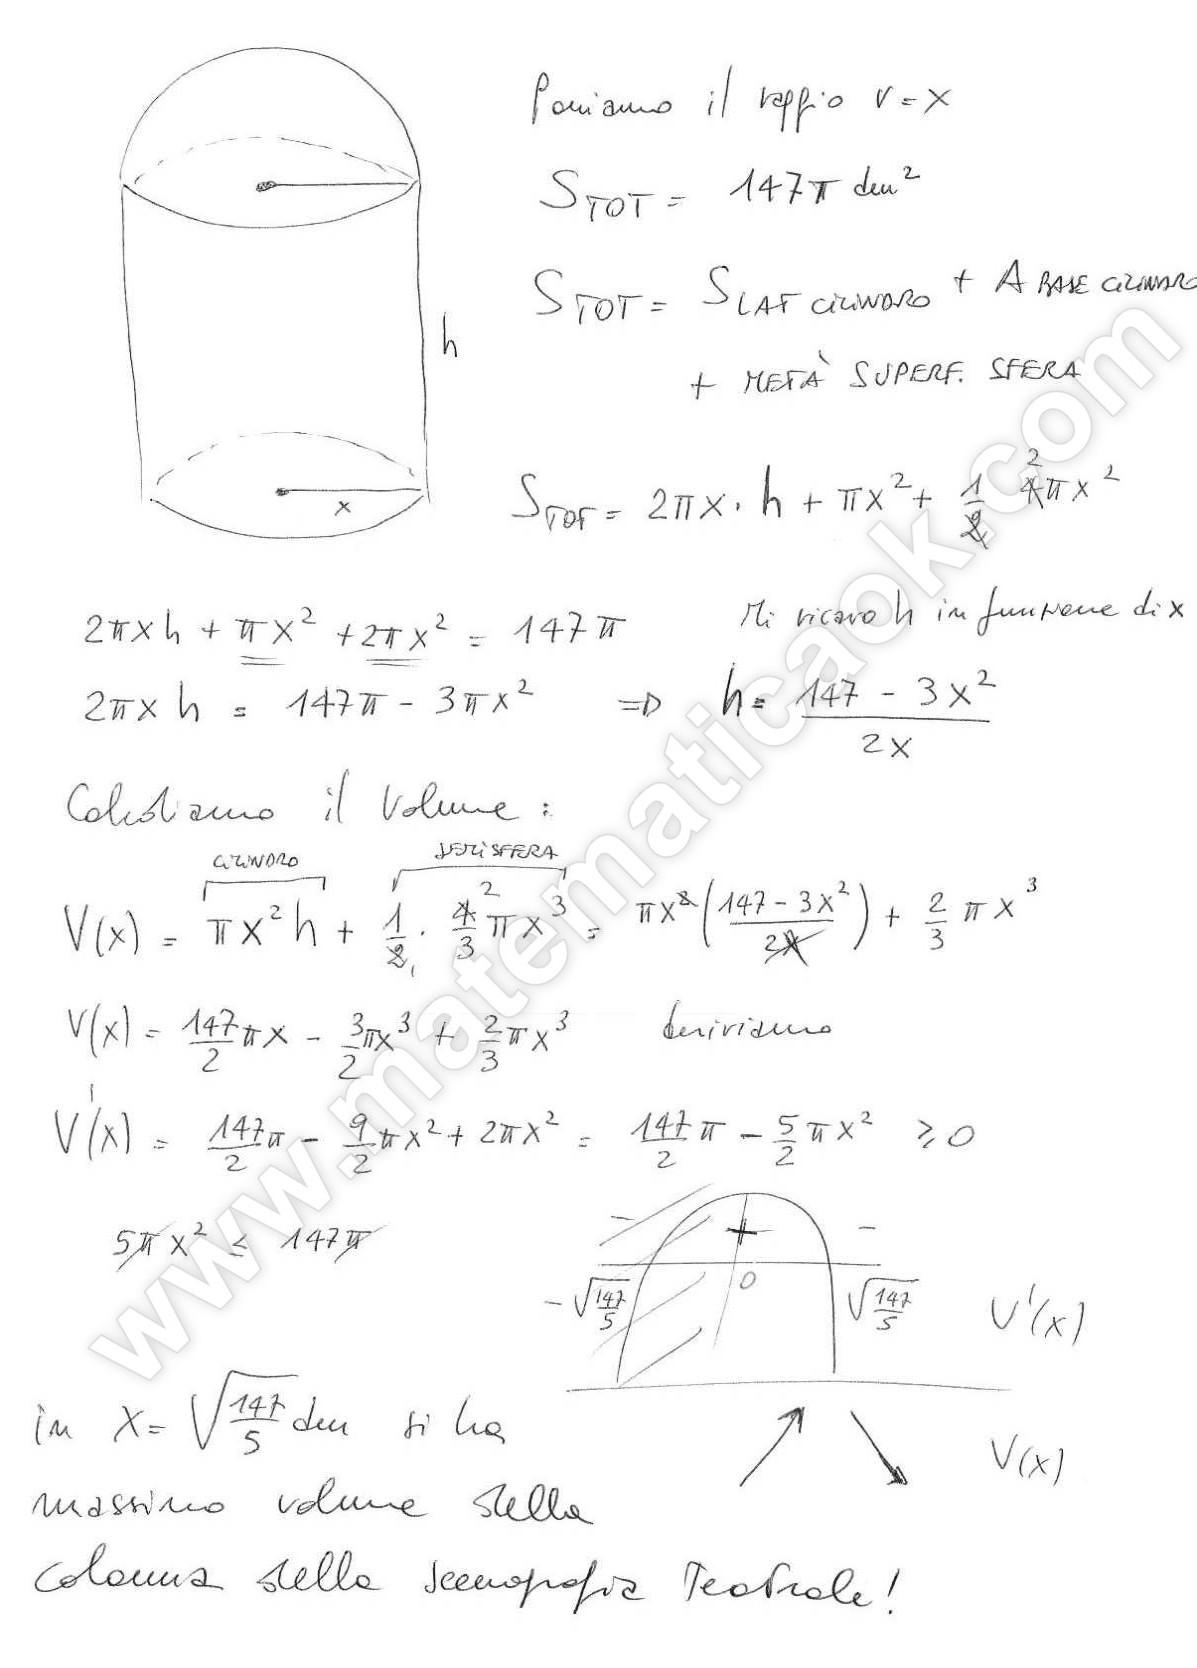 Poniamo il raggio r = x
S TOT = 147π dm²
S TOT = S LAT CILINDRO + A BASE CILINDRO
+ METÀ SUPERF. SFERA
h
x
S TOT = 2πx · h + πx² + 1/2 4πx² 2
Mi ricavo h in funzione di x
2πxh + πx² + 2πx² = 147π
2πx h = 147π - 3πx² ⇒ h = (147 - 3x²)/2x
Calcoliamo il Volume :
CILINDRO SEMISFERA
V(x) = πx²h + 1/2 · 4/3 πx³ = πx²((147 - 3x²)/2x) + 2/3 πx³
V(x) = 147/2 πx - 3/2 πx³ + 2/3 πx³ deriviamo
V'(x) = 147/2 π - 9/2 πx² + 2πx² = 147/2 π - 5/2 πx² ≥ 0
5πx² ≤ 147π
- + -
-√(147/5) 0 √(147/5) V'(x)
in x = √(147/5) dm si ha
V(x)
massimo volume della
colonna della scenografia teatrale!
www.matematicaok.com